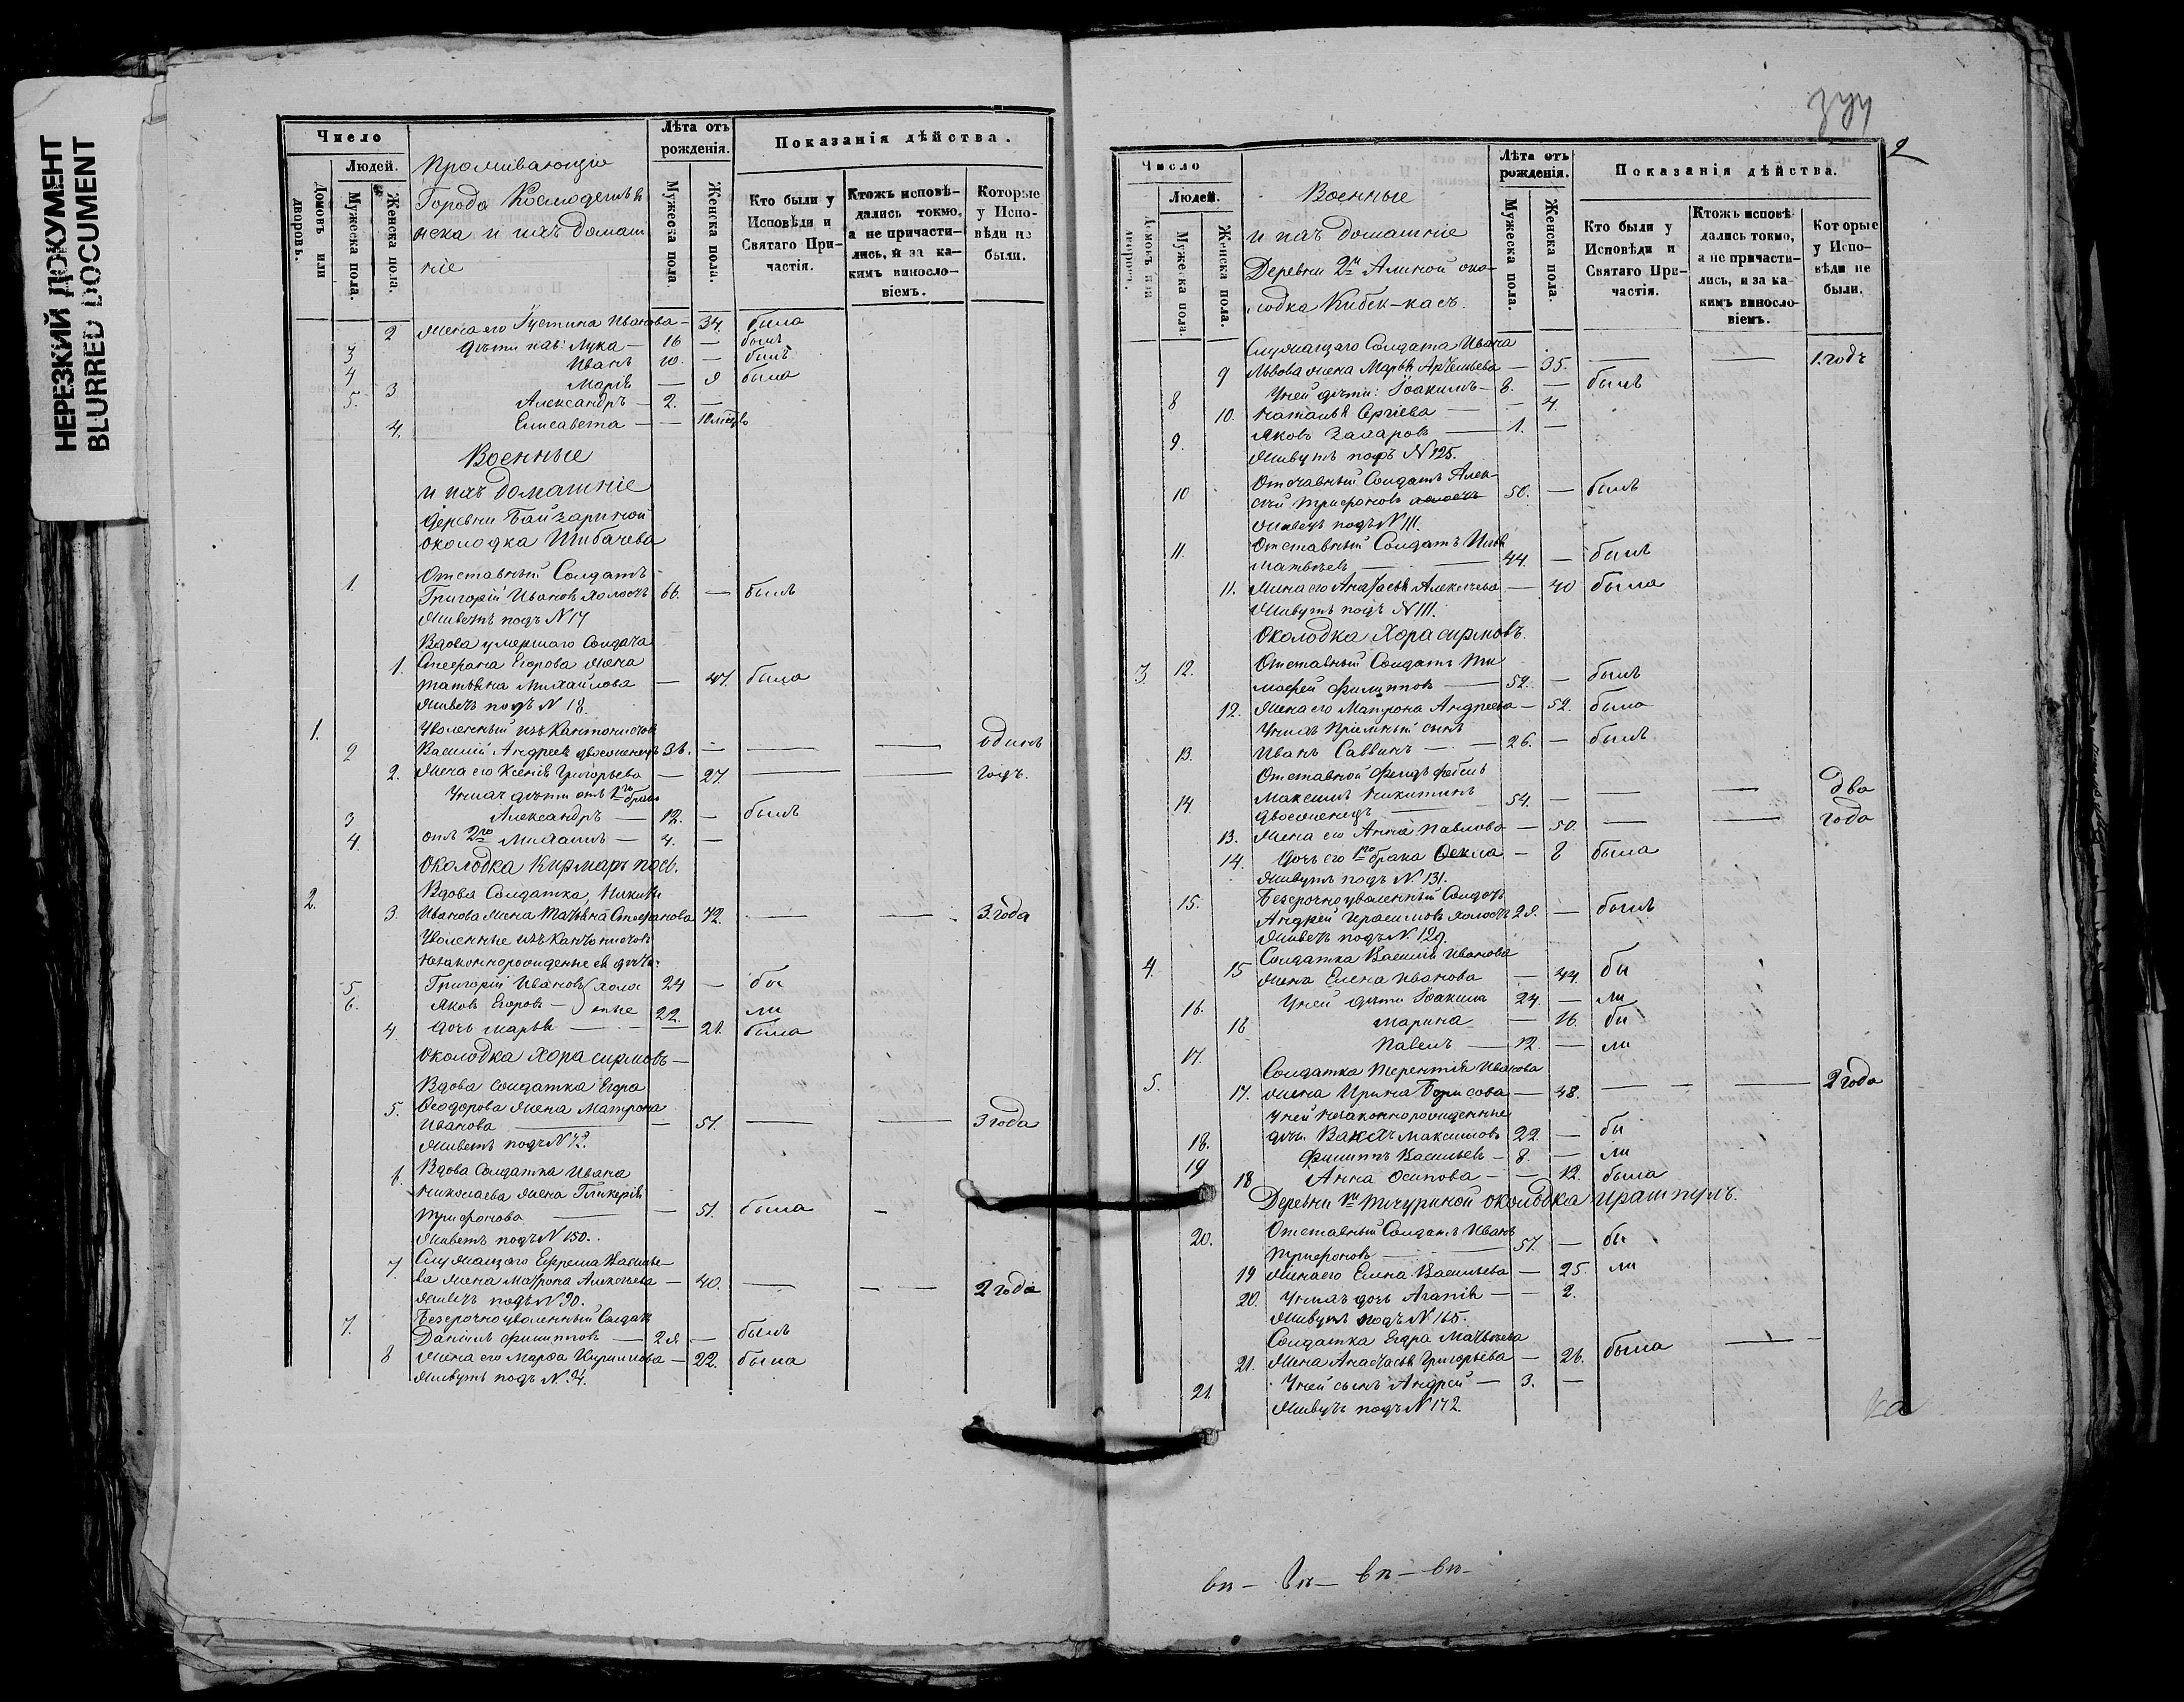 НЕРЕЗКИЙ ДОКУМЕНТ
BLURRED DOCUMENT
Число
Людей.
Домовъ или дворовъ.
Мужеска пола.
Женска пола.
Проживающіе
Города Космодемья
нска и ихъ домаш
ніе
Лѣта отъ рожденія.
Мужеска пола
Женска пола.
Показанія дѣйства.
Кто были у Исповѣди и Святаго Причастія.
Ктожъ исповѣдались токмо, а не причастились, и за какимъ винословіемъ.
Которые у Исповѣди не были.
2 Жена его Іустина Иванова — 34. была
3 Дѣти ихъ: Лука — 16 — былъ
4 Иванъ 10. — былъ
3 Марія — 9 была
5. Александръ — 2. —
4. Елисавета — — 10 мѣсцвъ
Военные
и ихъ домашніе
Деревни Байзариной
околодка Шибачева
Отставный Солдатъ
1. Григорій Ивановъ холостъ 66. — былъ
Живетъ подъ N 17
Вдова умершаго Солдата
1. Стефана Егорова жена
Татьяна Михайлова — 47. была
Живетъ подъ N 18.
1. Уволенный изъ Кантонистовъ
2 Василій Андреевъ двоеженецъ 36. — — — одинъ
2. Жена его Ксенія Григорьева — 27 — — годъ.
У нихъ дѣти отъ 1го брака
3 Александръ — 12. — былъ
4. отъ 2го Михаилъ — 4. —
Околодка Кирмаръ пось.
2. Вдова Солдатка, Никиты
3. Иванова жена Татьяна Стефанова 72. — — 3 года
Уволенные изъ Кантонистовъ
Незаконнорожденные ея дѣти:
5 Григорій Ивановъ холос 24 — бы
6. Яковъ Егоровъ — тые 22. ли
4 Дочь Марья — — 21. была
Околодка Хора сирмовъ —
Вдова солдатка Егора
5. Ѳеодорова жена Матрона
Иванова — — 51. — — 3 года
Живетъ подъ N 72.
6. Вдова Солдатка Ивана
Николаева жена Гликерія
Трифонова — — 51. была —
Живетъ подъ N 150.
7 Служащаго Ефрема Василье-
ва жена Матрона Алексѣева — 40. — — — 2 года
Живетъ подъ N 90.
7. Безсрочноуволенный Солдатъ
Даніилъ Филипповъ — 29 — былъ
8 Жена его Марѳа Кириллова — 22. была
Живутъ подъ N. 94.
2
Число
Людей.
Домовъ или дворовъ.
Мужеска пола.
Женска пола.
Военные
и ихъ домашніе
Деревни 2й Алиной око-
лодка Кибек-касъ.
Лѣта отъ рожденія.
Мужеска пола.
Женска пола.
Показанія дѣйства.
Кто были у Исповѣди и Святаго Причастія.
Ктожъ исповѣдались токмо, а не причастились, и за какимъ винословіемъ.
Которые у Исповѣди не были.
Служащаго Солдата Ивана
9 Львова жена Марья Артемьева — 35. — — 1. годъ
8 У ней дѣти: Іоакимъ — 8. — былъ
10. Наталья Сергіева — — 4.
9. Яковъ Захаровъ — 1. —
Живутъ подъ N 125.
Отставный Солдатъ Алек-
10 сѣй Трифоновъ холостъ 50. — былъ
Живетъ подъ N 111.
11. Отставный Солдатъ Илья
Матвѣевъ — — 44. — былъ
11. Жена его Анастасья Алексѣева — 40 была
Живутъ подъ N 111.
Околодка Хора сирмовъ.
3. 12. Отставный Солдатъ Ти
мофей Филипповъ — 52. — былъ
12. Жена его Матрона Андреева — 52. была
У нихъ пріемный сынъ
13. Иванъ Саввинъ — — 26. — былъ
Отставной Фельдфебель
14 Максимъ Никитинъ 54. — — — два
двоеженецъ
13. Жена его Анна Павлова — 50. — — года
14. Дочь его 1го брака Ѳекла — 8 была
Живутъ подъ N. 131.
15. Безсрочноуволенный Солдатъ
Андрей Герасимовъ холостъ 29. — былъ
Живетъ подъ N. 129.
4. Солдатка Василія Иванова
15 жена Елена Иванова — 44. бы
16. У ней дѣти Іоакимъ 24. — ли
16 Марина — 16. бы
17. Павелъ — 12. — ли
5. Солдатка Терентія Иванова
17. жена Ирина Борисова — 48. — — — 2 года
У ней незаконнорожденные
18. дѣти. Вакхъ Максимовъ 22. — бы
19 Филиппъ Васильевъ — 8. — ли
18 Анна Осипова — — 12. была
Деревни 1й Тичуриной околодка Ирашпулъ.
20. Отставный Солдатъ Иванъ
Трифоновъ — — 57. — бы
19 Жена его Елена Васильева — 25. ли
20. У нихъ дочь Агапія — — 2.
Живутъ подъ N. 165.
Солдатка Егора Матвѣева
21. Жена Анастасья Григорьева — 26. была — —
21. У ней сынъ Андрей — 3. —
Живутъ подъ N 172.
вп — вп — вп — вп —